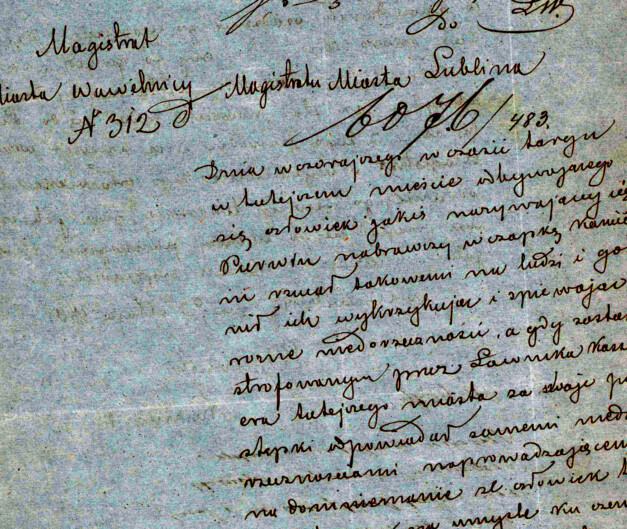 Do
Magistrat
Miasta Wąwelnicy
N 312
Magistratu Miasta Lublina
6076/483.
Dnia wczorajszego w czasie targu
w tutejszem mieście odbywającego
się człowiek jakiś nazywający się
Pierwin nabrawszy w czapkę kamie
ni rzucał takowemi na ludzi i go
nił ich wykrzykując i śpiewając
rozne niedorzeczności, a gdy został
strofowanym przez Ławnika Kass
era tutejszego miasta za swoje po
stępki odpowiadał samemi niedo
rzecznościami naprowadzającemi
na domniemanie że człowiek t
umyśle ku